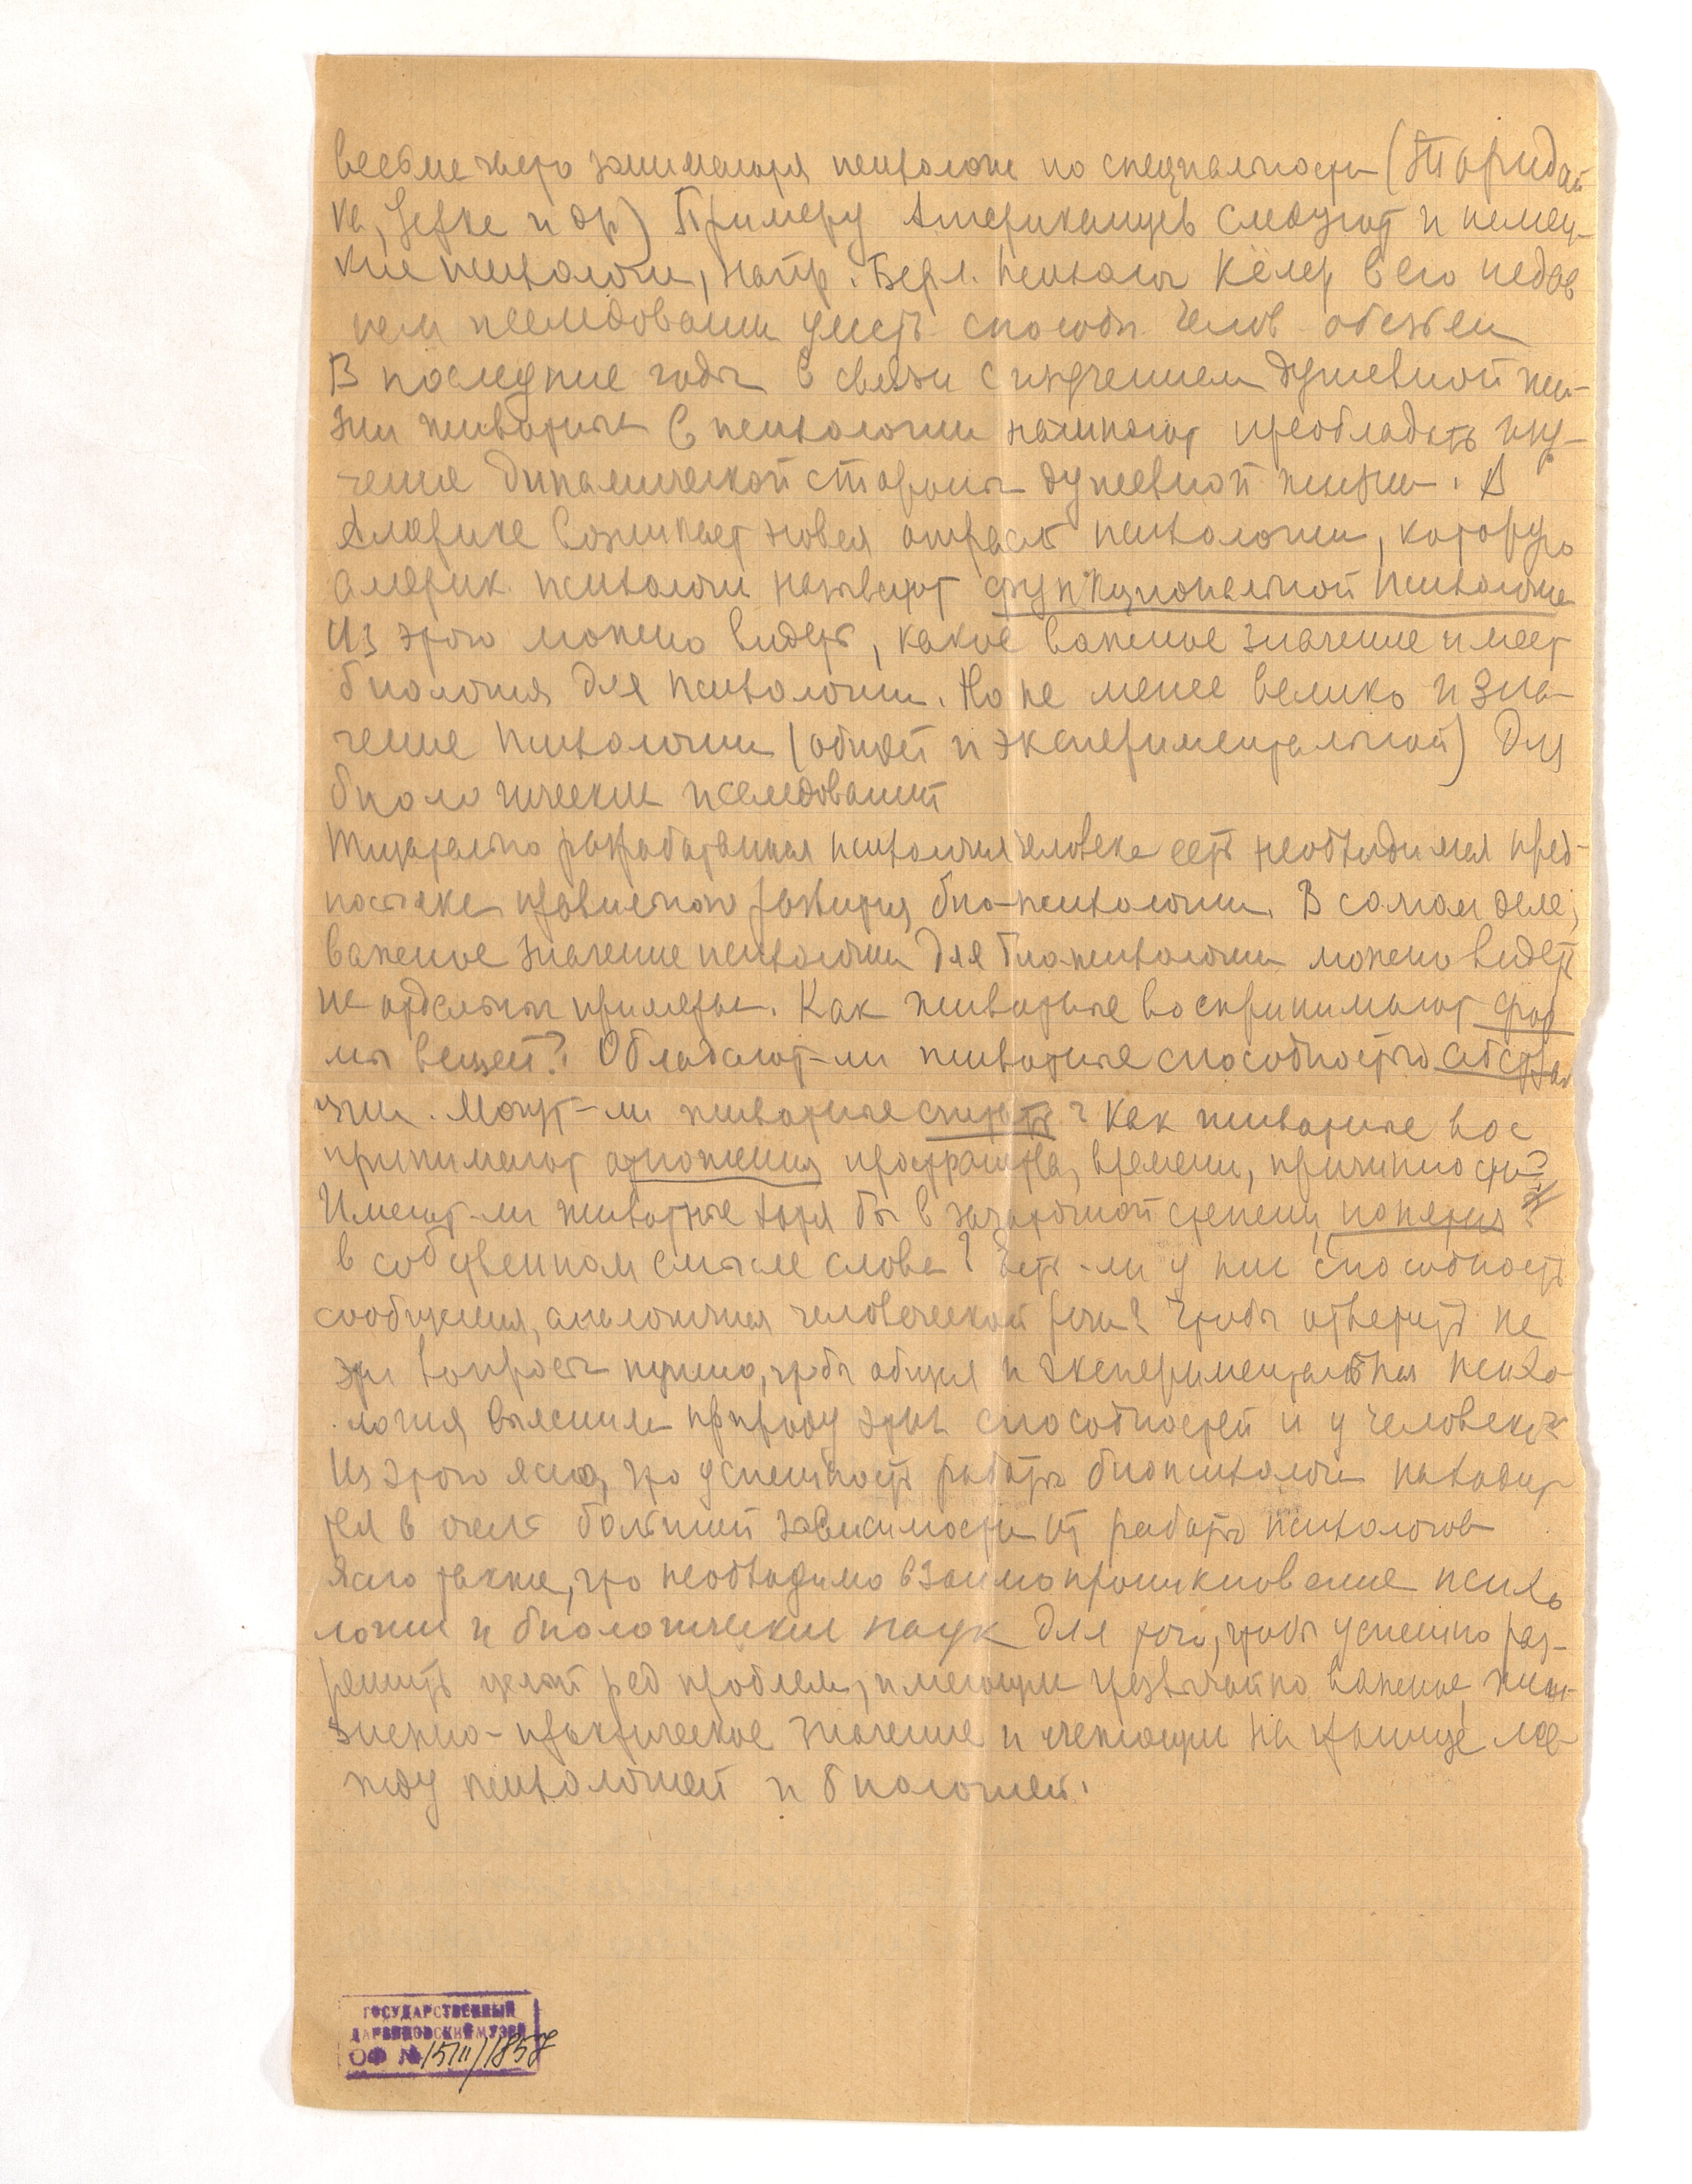 весьма часто занимаются психологи по специальности (Торндай
ке, и др) Примеру Американцев следуют и немец-
кие психологи, напр. Берл. психолог Кёлер в его недав
нем исследовании умств. способн. челов. обезьян
В последние годы в связи с изучением душевной жи-
зни животных в психологии начинает преобладать изу-
чение динамической стороны душевной жизни. В
Америке возникает новая отрасль психологии, которую
америк. психологи называют функциональной психологие
Из этого можно видеть, какое важное значение имеет
биология для психологии. Но не менее велико и зна-
чение психологии (общей и экспериментальной) для
биологических исследований
Тщательно разработанная психология человека есть необходимая пред-
посылка правильного развития био-психологии. В самом деле,
важное значение психологии для биопсихологии можно видеть
на отдельных примерах. Как животные воспринимают фор
мы вещей? Обладают-ли животные способностью абстрак
ции. Могут-ли животные считать? Как животные вос
принимают отношения пространства, времени, причинности?
Имеют-ли животные хотя бы в зачаточной степени понятия
в собственном смысле слова? Есть-ли у них способность
сообщения, аналогичная человеческой речи? Чтобы ответить на
эти вопросы нужно, чтобы общая и экспериментальная психо-
логия выяснила природу этих способностей и у человека
Из этого ясно, что успешность работы биопсихологии находит
ся в очень большой зависимости от работы психологов
Ясно также, что необходимо взаимопроникновение психо
логии и биологических наук для того, чтобы успешно раз-
решить целый ряд проблем, имеющих чрезвычайно важное, жиз-
зненно-практическое значение и лежащих на границе ме-
жду психологией и биологией.
ГОСУДАРСТВЕННЫЙ
ДАРВИНОВСКИЙ МУЗЕЙ
ОФ № 15111/1857